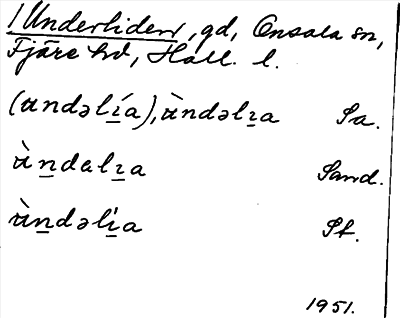 /Underliden, gd, Onsala sn,
Fjäre hd, Hall. l.
(ꭒndəlí̱a), ꭒ̀ndəlɪ̱a Sa.
ꭒ̀n̲dalɪ̱a Sand.
ꭒ̀n̲dəlí̱a Sf.
1951.